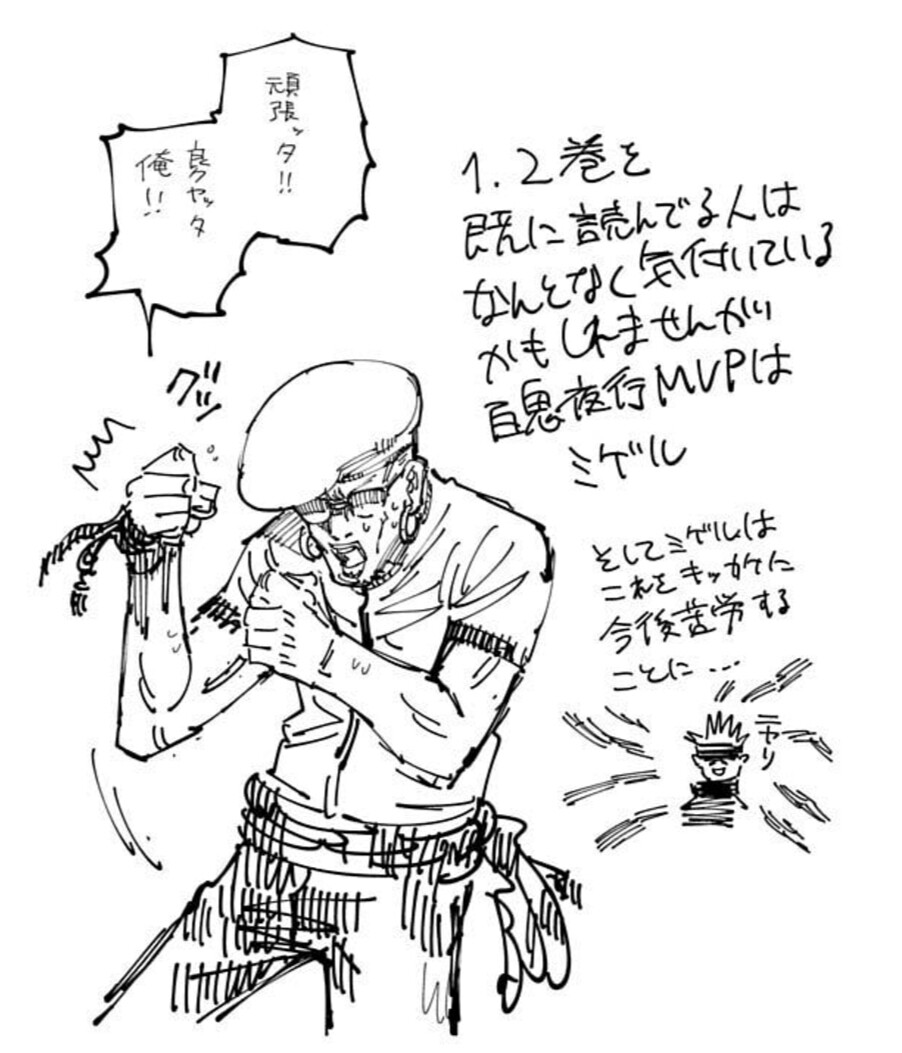 頑張ッタ!!
良クヤッタ
俺!!
グッ
1.2巻を
既に読んでる人は
なんとなく気付いている
かもしれませんが
百鬼夜行MVPは
ミゲル
そしてミゲルは
これをキッカケに
今後苦労する
ことに...
ニヤリ